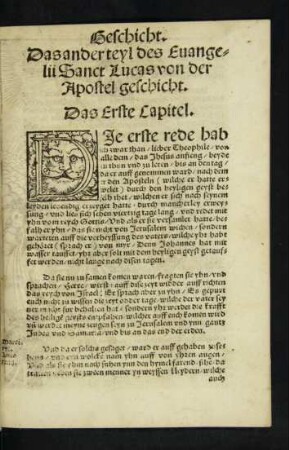 Geschicht.
Das ander teyl des Euange-
lii Sanct Lucas von der
Apostel geschicht.
Das Erste Capitel.
Die erste rede hab
ich zwar than, lieber Theophile, von
alle dem, das Jhesus anfieng, beyde
zu thun vnd zu leren, bis an den tag,
da er auff genommen ward, nach dem
er den Aposteln (wilche er hatte er-
welet) durch den heyligen geyst be-
leyden lebendig erzeyget hatte, durch mancherley erwey-
sung, vnd lies sich sehen viertzig tage lang, vnd redet mit
yhn vom reych Gottis, Vnd als er sie versamlet hatte, be-
falh er yhn, das sie nicht von Jerusalem weychen, sondern
warteten auff die verheyssung des vaters, wilche yhr habt
gehöret (sprach er) von myr, Denn Johannes hat mit
wasser taufft, yhr aber solt mit dem heyligen geyst getauf-
fet werden, nicht lange nach disen tagen.
Da sie nu zu samen komen waren, fragten sie yhn, vnd
sprachen, Herre, wirstu auff dise zeyt widder auff richten
das reych von Israel? Er sprach aber zu yhn, Es gepurt
euch nicht zu wissen die zeyt odder tage, wilche der vater sey-
ner macht fur behalten hat, sondern yhr werdet die krafft
des heyligen geystis empfahen, wilcher auff euch komen wird
vnd werdet meyne zeugen seyn zu Jerusalem vnd ynn gantz
Judea vnd Samaria, vnd bis an das end der erden.
Vnd da er solchs gesaget, ward er auff gehaben zusehens
yhn auff von yhren augen,
Vnd als sie yhm nach sahen ynn den hymel farend, sihe, da
stunden neben sie zween menner yn weyssen kleydern, wilche
auch